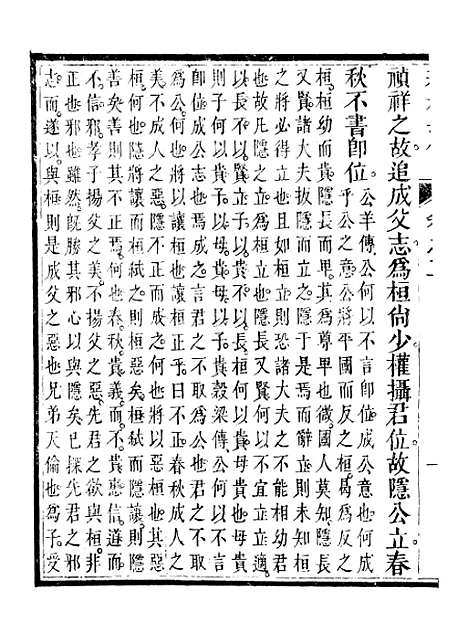 禎祥之故追成父志為桓尚少權攝君位故隱公立春
秋不書卽位。公羊傳公何以不言卽位成公意也何成
乎公之意公將平國而反之桓曷為反之
桓桓幼而貴隱長而卑其為尊卑也微國人莫知隱長
又賢諸大夫扳隱而立之隱于是焉而辭立則未知桓
之將必得立也且如桓立則恐諸大夫之不能相幼君
也故凡隱之立為桓立也隱長又賢何以不宜立立適
以長不以賢立子以貴不以長桓何以貴母貴也母貴
則子何以貴子以母貴母以子貴穀梁傳公何以不言
卽位成公志也焉成之言君之不取為公也君之不取
為公何也將以讓桓也讓桓正乎曰不正春秋成人之
美不成人之惡。隱不正而成之何也將以惡桓也其惡
桓何也隱將讓而桓弒之則桓惡矣桓弒而隱讓則隱
善矣善則其不正焉何也春秋貴義而不貴惠信道而
不信邪孝子揚父之美不揚父之惡先君之欲與桓非
正也邪也雖然旣勝其邪心以與隱矣已探先君之邪
志而遂以與桓則是成父之惡也兄弟天倫也為子受